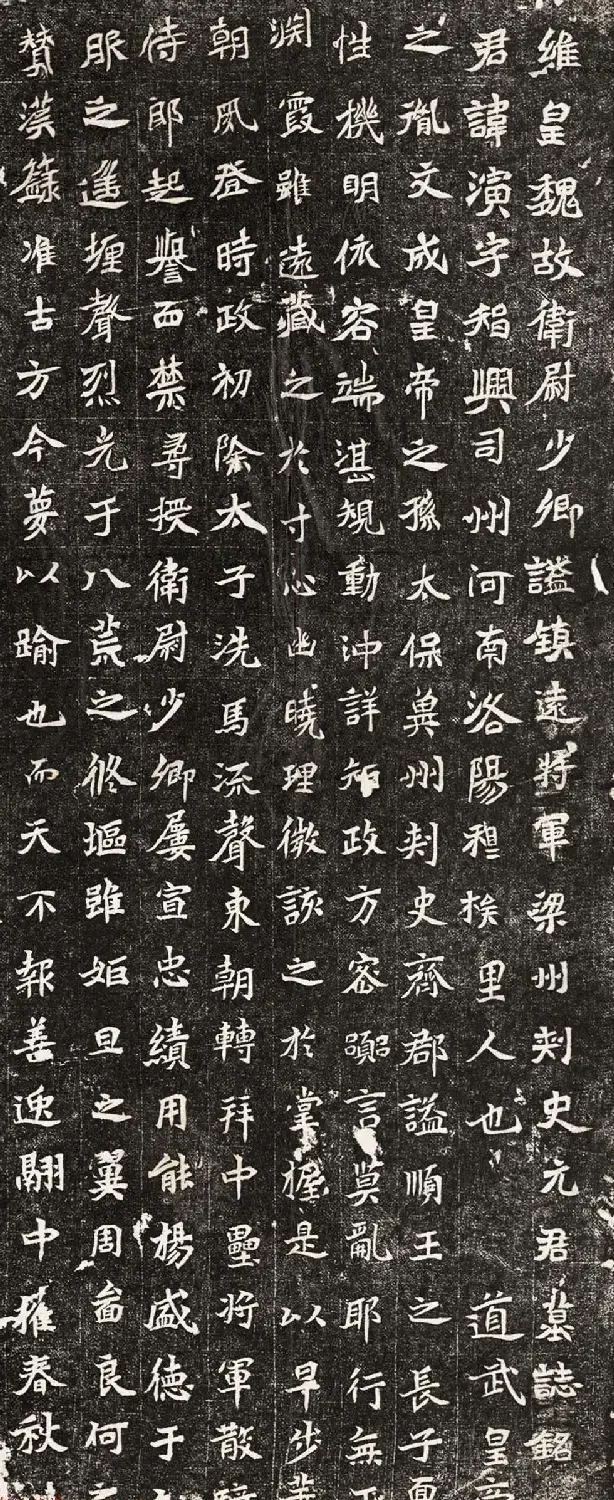 維皇魏故衛尉少卿謚鎮遠將軍梁州刾史元君墓誌銘
君諱演字智興司州河南洛陽穆族里人也道武皇帝
之胤文成皇帝之孫太保兾州刾史齊郡謚順王之長子
性機明依容端湛規動沖詳知政方容言莫亂耶行無
渕霞雖遠藏之於寸心幽曉理微該之於掌握是以早步
朝風登時政初除太子洗馬流聲東朝轉拜中壘將軍散
侍郎起譽西禁尋授衛尉少卿屢宣忠績用能楊盛德于
服之遥堙聲烈光于八荒之脩塸雖姬旦之翼周畱良何
贊漢籙准古方今蔑以踰也而天不報善逸翮中摧春秋